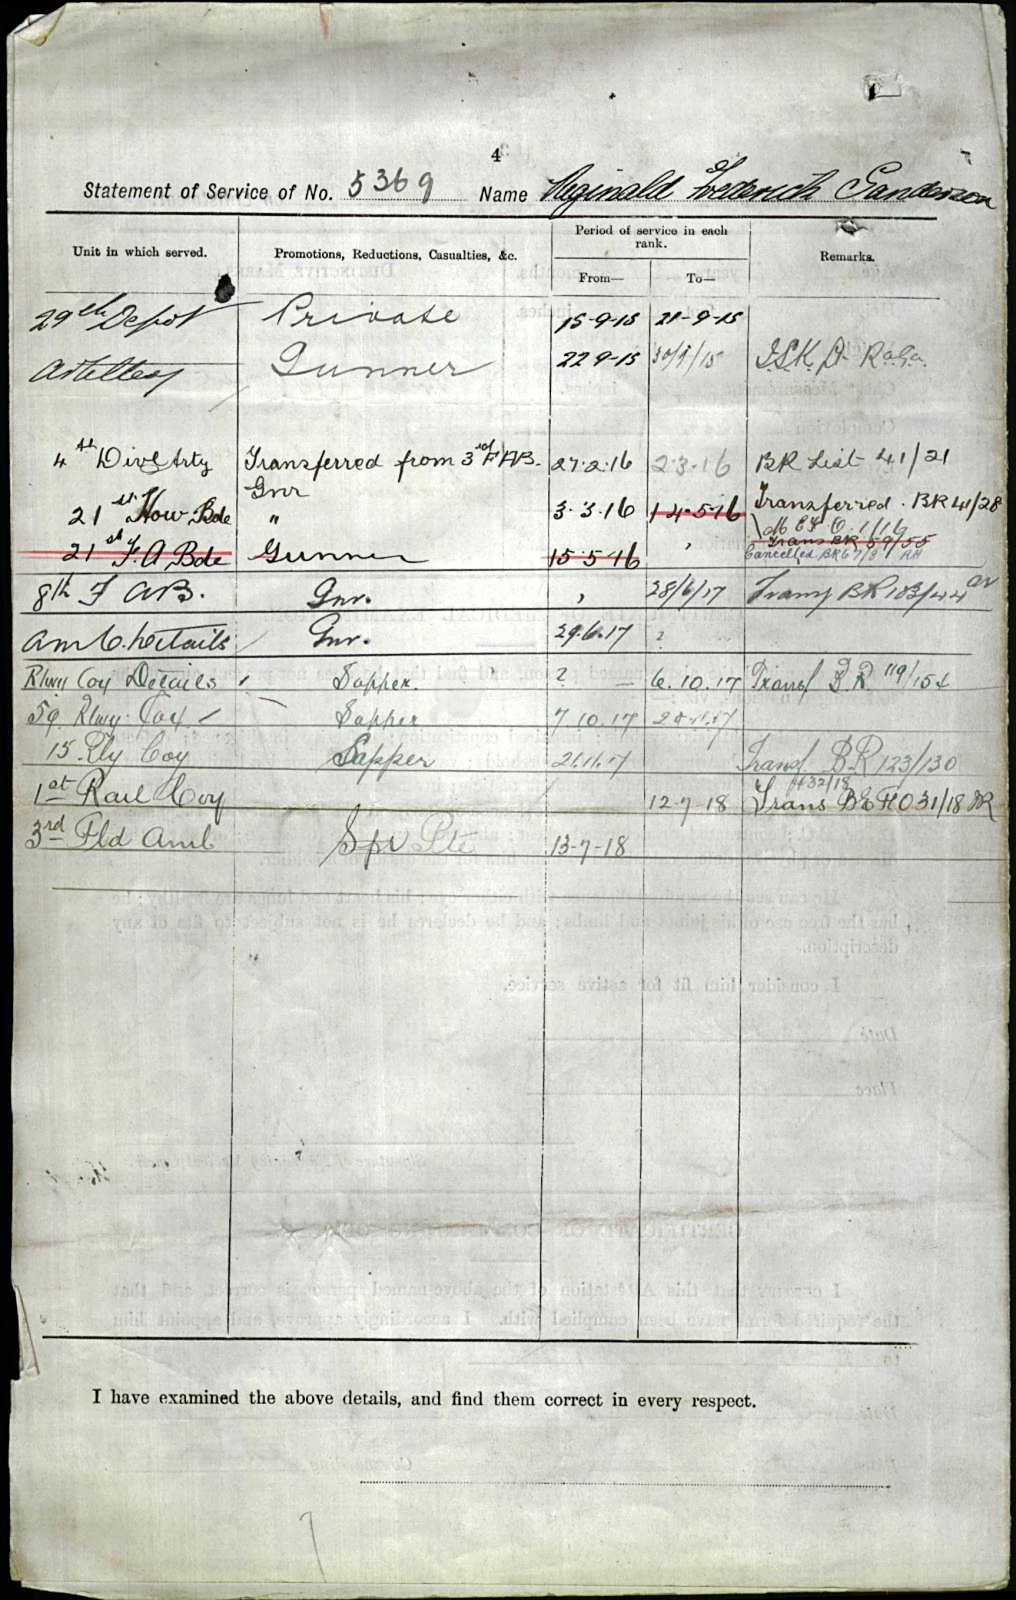 4
Statement of Service of No. 5369 Name Reginald Frederick Sanderson
Unit in which served. Promotions, Reductions, Casualties, &c. Period of service in each rank. From— To— Remarks.
29th Depot Private 15-9-15 21-9-15
Artillery Gunner 22 9-15 30/9/15
4th Div Arty Transferred from 3rd FAB. 27.2.16 2.3.16 BR List 41/21
Gnr
21st How Bde " 3.3.16 14.5.16 Transferred. BR 41/28
21st F.A Bde Gunner 15.5.16 Trans BR 59/55
Cancelled BR 67/8
8th F AB. Gnr. 28/6/17 Transf BR 103/44
Amb. Details Gnr. 29.6.17 ?
Rlwy Coy Details Sapper. ? 6.10.17 Transf B.R. 119/154
59 Rlwy Coy Sapper 7.10.17
15 Rly Coy Sapper 21.11.17 Transf B.R 123/130
1st Rail Coy 12-7-18 Trans 31/18
3rd Fld Amb Spr Pte 13-7-18
I have examined the above details, and find them correct in every respect.